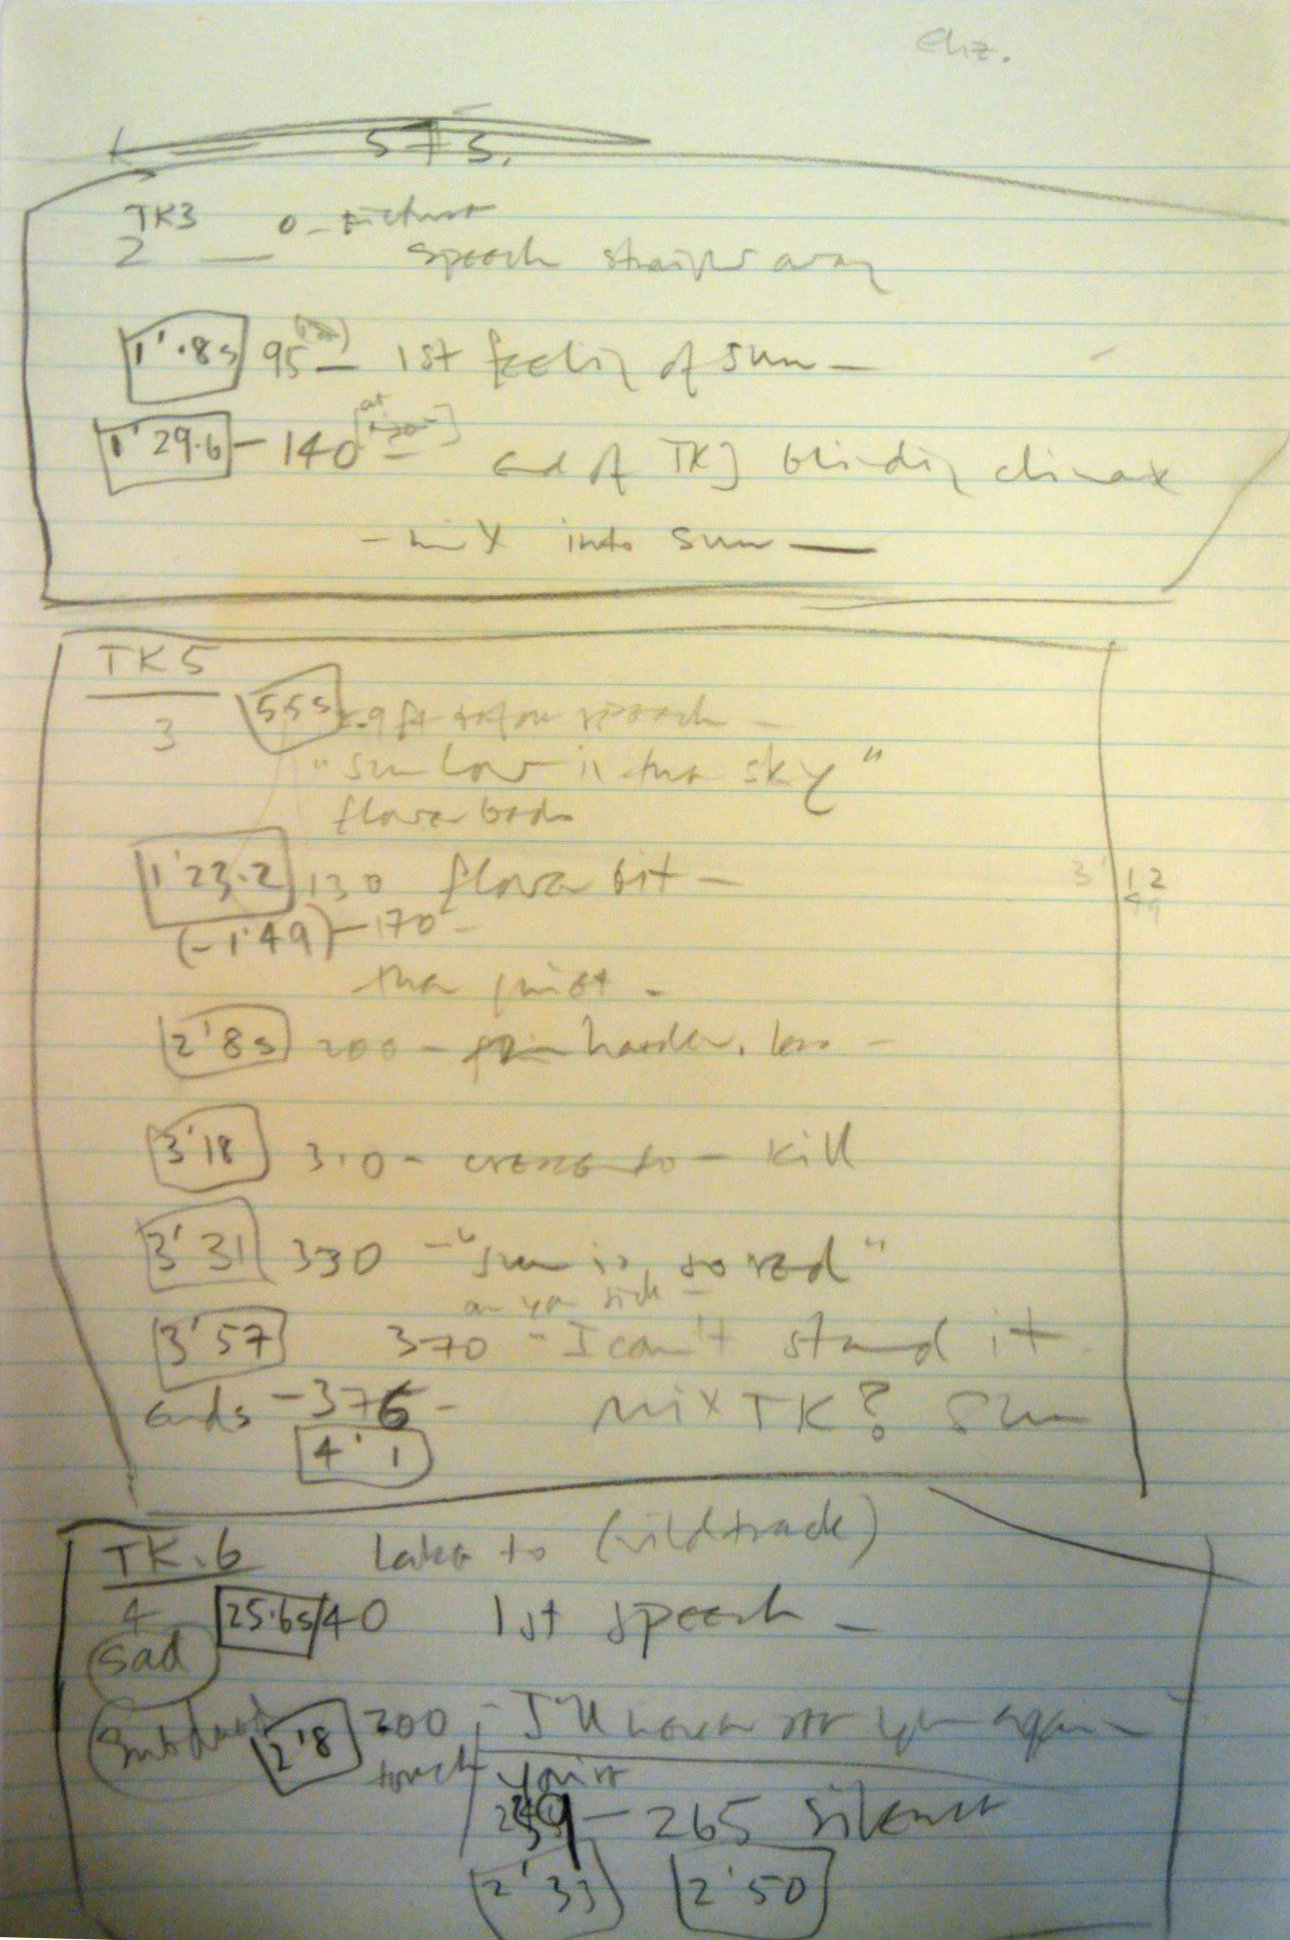 Eliz.
575.
TK3
2 — 0 - picture
speech straight away
1'.8s 95 — 1st feeling of sun —
1'29.6 — 140 [at] end of TK3 blinding climax
- mix into sun —
TK5
3 55s speech —
"Sun low in the sky"
flower beds
1'23.2 130 flower bit —
3' 12
(-1'49) - 170 -
then quiet -
2'8s 200 - harder, less -
3'18 310 - cresc to - kill
3'31 330 - "sun is so red"
on yr side -
3'57 370 - I can't stand it
ends - 376 - mix TK? Sun
4' 1
TK.6 Later to (wildtrack)
4 25.6s 40 1st speech —
Sad
Subdued 2'8 200 - I'll never see you again —
touch quiet
239 - 265 silence
2'33 2'50